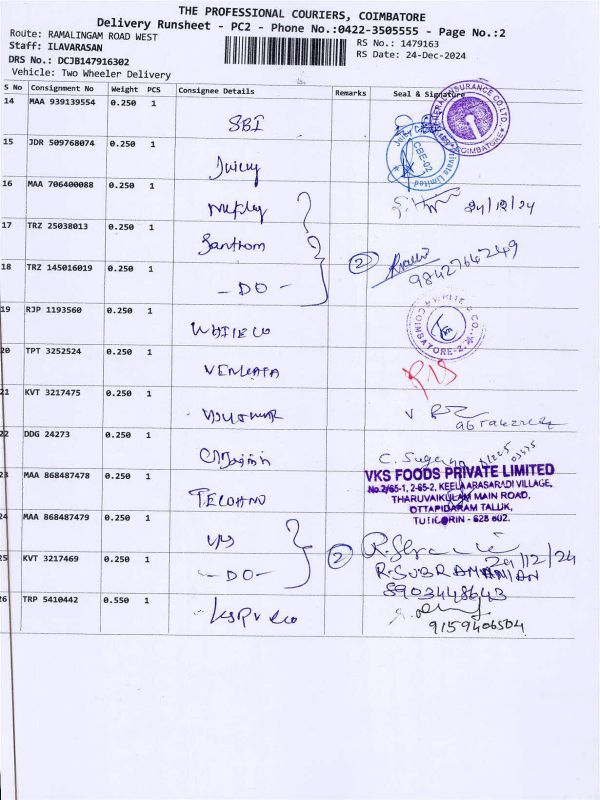 THE PROFESSIONAL COURIERS, COIMBATORE
Delivery Runsheet - PC2 - Phone No.:0422-3505555 - Page No.:2
Route: RAMALINGAM ROAD WEST
Staff: ILAVARASAN
DRS No.: DCJB147916302
Vehicle: Two Wheeler Delivery
RS No.: 1479163
RS Date: 24-Dec-2024
S No Consignment No Weight PCS Consignee Details Remarks Seal & Signature
14 MAA 939139554 0.250 1 SBI
15 JDR 509768074 0.250 1
CBE-02
16 MAA 706400088 0.250 1 24/12/24
17 TRZ 25038013 0.250 1 Santhom
18 TRZ 145016019 0.250 1 - DO - 2 9842764249
19 RJP 1193560 0.250 1
COIMBATORE-2
20 TPT 3252524 0.250 1
21 KVT 3217475 0.250 1
22 DDG 24273 0.250 1
23 MAA 868487478 0.250 1
VKS FOODS PRIVATE LIMITED
No.2/65-1, 2-65-2, KEELAARASARADI VILLAGE,
THARUVAIKULAM MAIN ROAD,
OTTAPIDARAM TALUK,
TUTICORIN - 628 002.
24 MAA 868487479 0.250 1
25 KVT 3217469 0.250 1 - DO - 2 24/12/24
R. SUBRAMANIAN
8903448643
26 TRP 5410442 0.550 1
9159406504